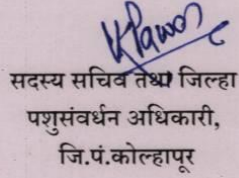 सदस्य सचिव तथा जिल्हा
पशुसंवर्धन अधिकारी,
जि.पं.कोल्हापूर